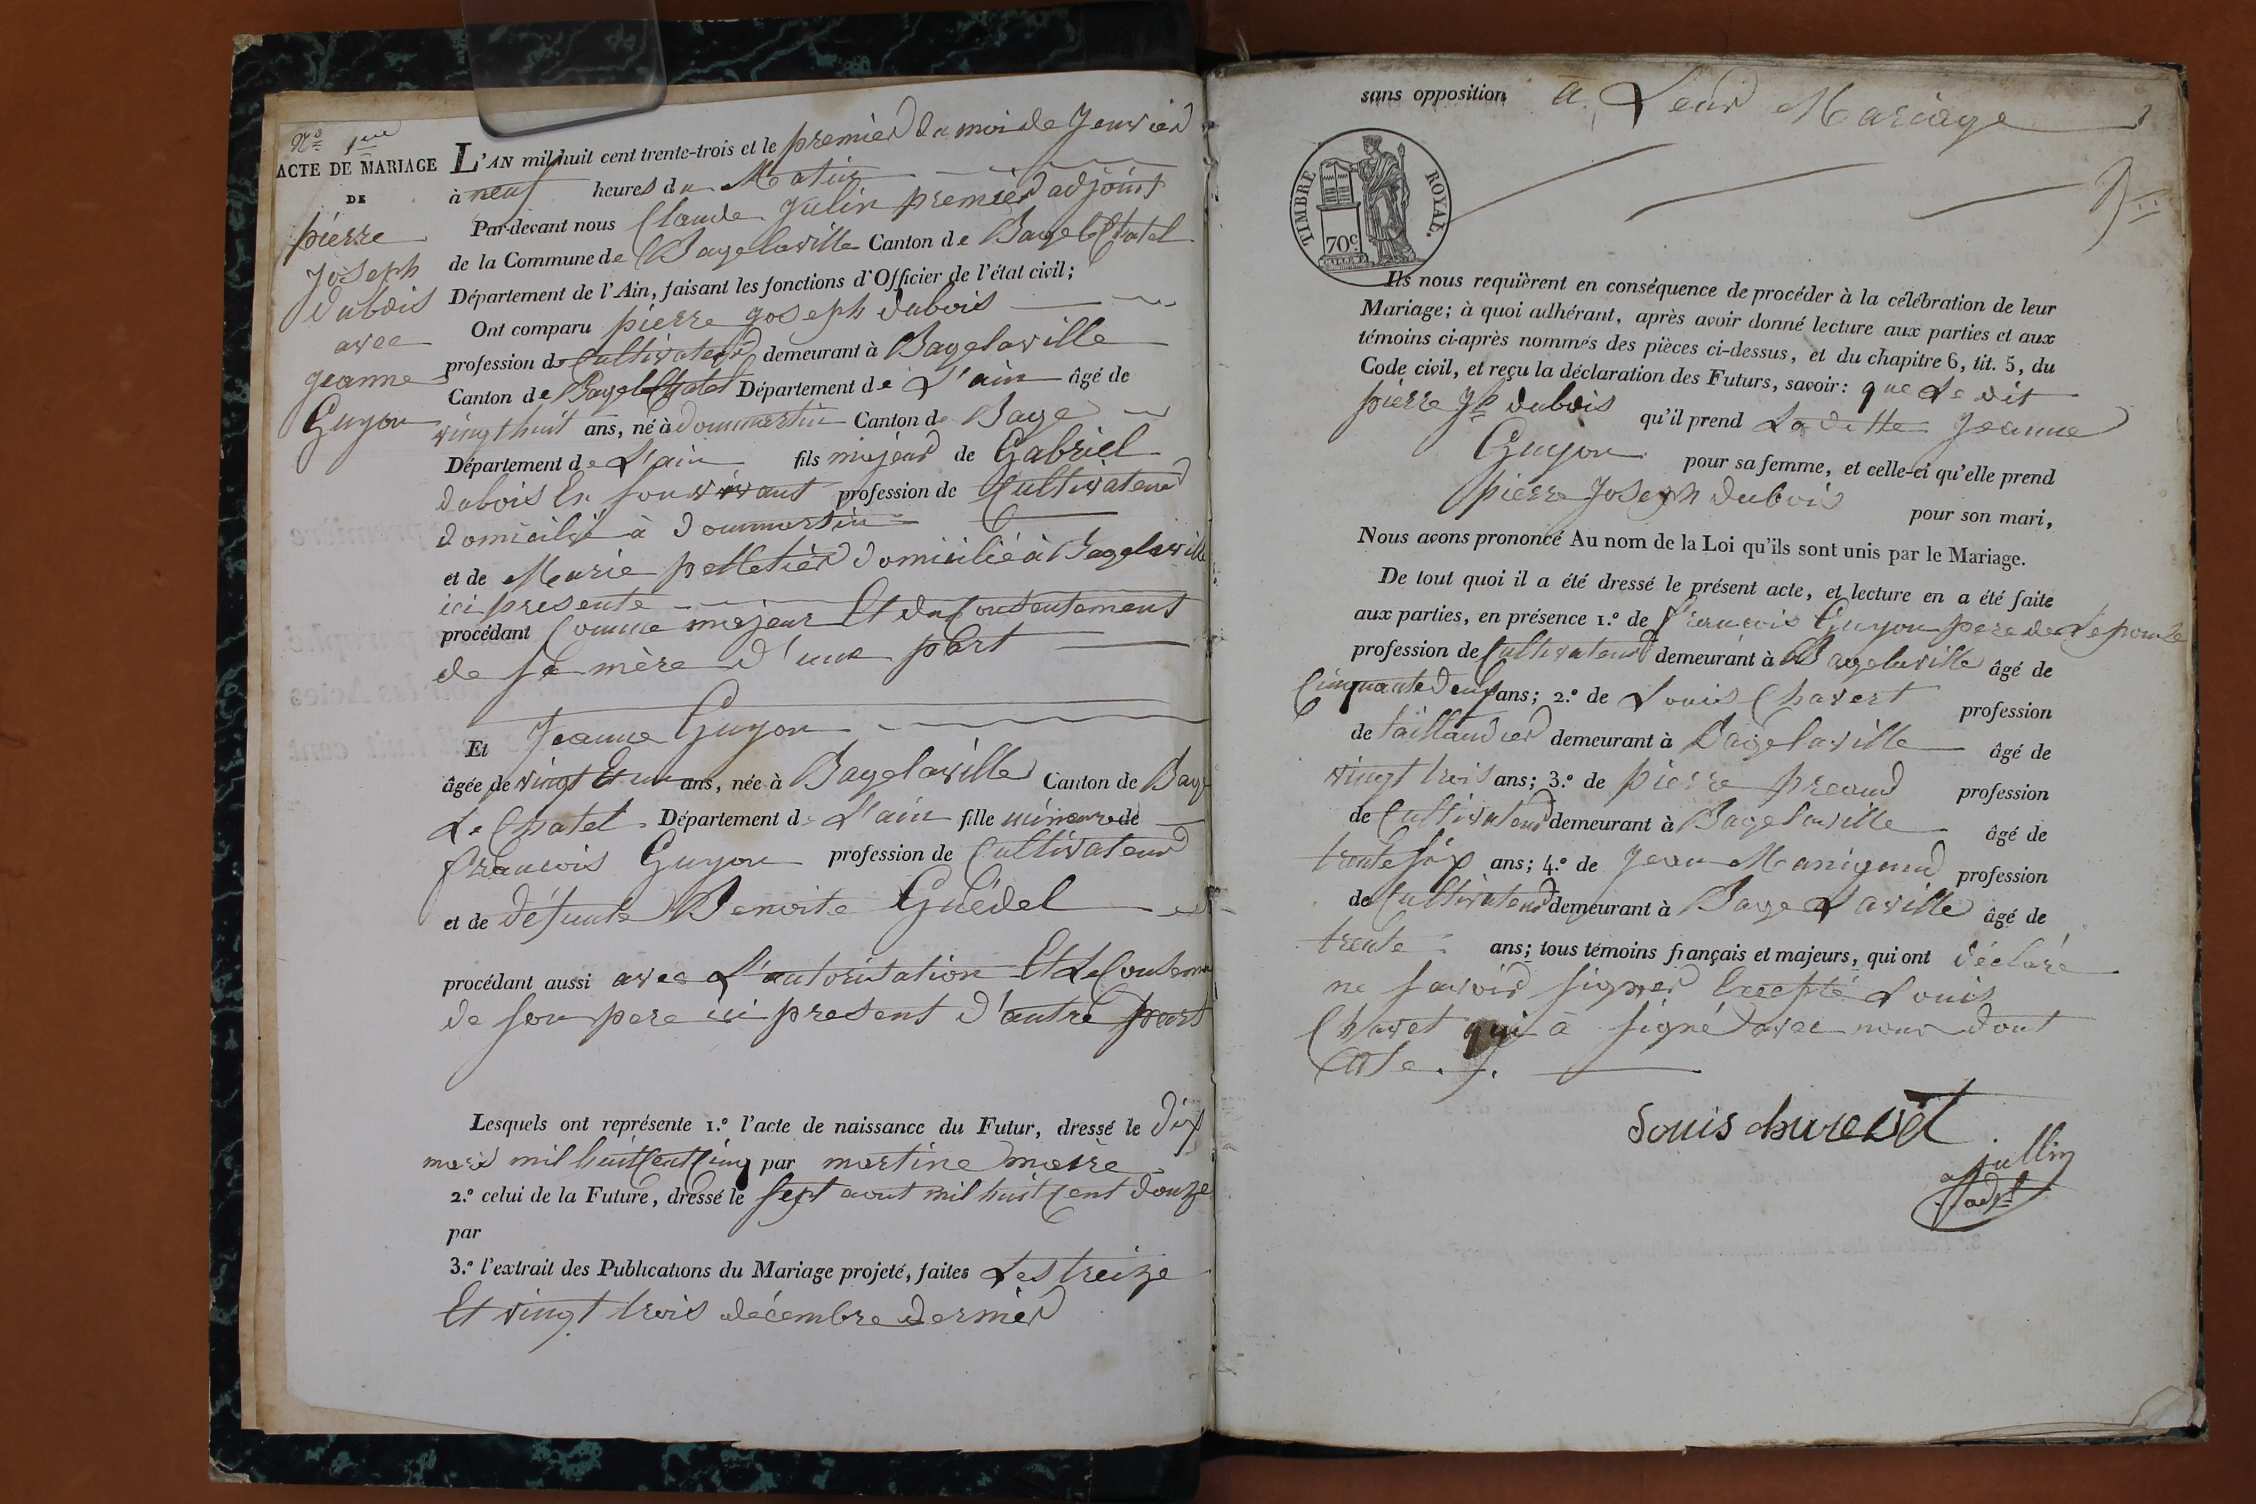 N.o 1ere
ACTE DE MARIAGE
DE
pierre
Joseph
dubois
avec
jeanne
Guyon
L'AN mil huit cent trente-trois et le premier du moi de Jenvier
à neuf heures du Matin
Par-devant nous Claude Julin premier adjoint
de la Commune de Bagelaville Canton de Bagé Chatel
Département de l'Ain, faisant les fonctions d'Officier de l'état civil;
Ont comparu pierre joseph dubois
profession de Cultivateur demeurant à Bagelaville
Canton de Bagelchatel Département de L'ain âgé de
vingt huit ans, né à dommartin Canton de Bage
Département de L'ain fils majeur de Gabriel
dubois En son vivant profession de Cultivateur
domicilié à dommartin
et de Marie pelletier domicilié à Bagelaville
ici presente
procédant Comme majeur Et du Consentement
de sa mère d'une part
Et Jeanne Guyon
âgée de vingt Et un ans, née à Bagelaville Canton de Bage
Le Chatel Département de L'ain fille mineure de
francois Guyon profession de Cultivateur
et de défunte Benoite Guédel
procédant aussi avec L'autorisation Et Le Consem
de son pere ici present d'autre part
Lesquels ont représente 1.o l'acte de naissance du Futur, dressé le dix
mars mil huit Cent Cinq par martine maire
2.o celui de la Future, dressé le sept aout mil huit Cent douze
par
3.o l'extrait des Publications du Mariage projeté, faites Les treize
Et vingt trois décembre dernier
sans opposition a Leur Mariage
TIMBRE ROYAL.
70c.
Ils nous requièrent en conséquence de procéder à la célébration de leur
Mariage; à quoi adhérant, après avoir donné lecture aux parties et aux
témoins ci-après nommés des pièces ci-dessus, et du chapitre 6, tit. 5, du
Code civil, et reçu la déclaration des Futurs, savoir: que Le dit
pierre Jh dubois qu'il prend La ditte Jeanne
Guyon pour sa femme, et celle-ci qu'elle prend
pierre Joseph dubois pour son mari,
Nous avons prononcé Au nom de la Loi qu'ils sont unis par le Mariage.
De tout quoi il a été dressé le présent acte, et lecture en a été faite
aux parties, en présence 1.o de francois Guyon pere de Lepouze
profession de Cultivateur demeurant à Bagelaville âgé de
Cinquante deux ans; 2.o de Louis Chavert profession
de taillandier demeurant à Bagelaville âgé de
vingt trois ans; 3.o de pierre preaud profession
de Cultivateur demeurant à Bagelaville âgé de
trente six ans; 4.o de Jean Manigand profession
de Cultivateur demeurant à Bage Laville âgé de
trente ans; tous témoins français et majeurs, qui ont déclaré
ne savoir signer Excepté Louis
Chavet qui à signé avec nous dont
acte
Louis
Jullin
adjt